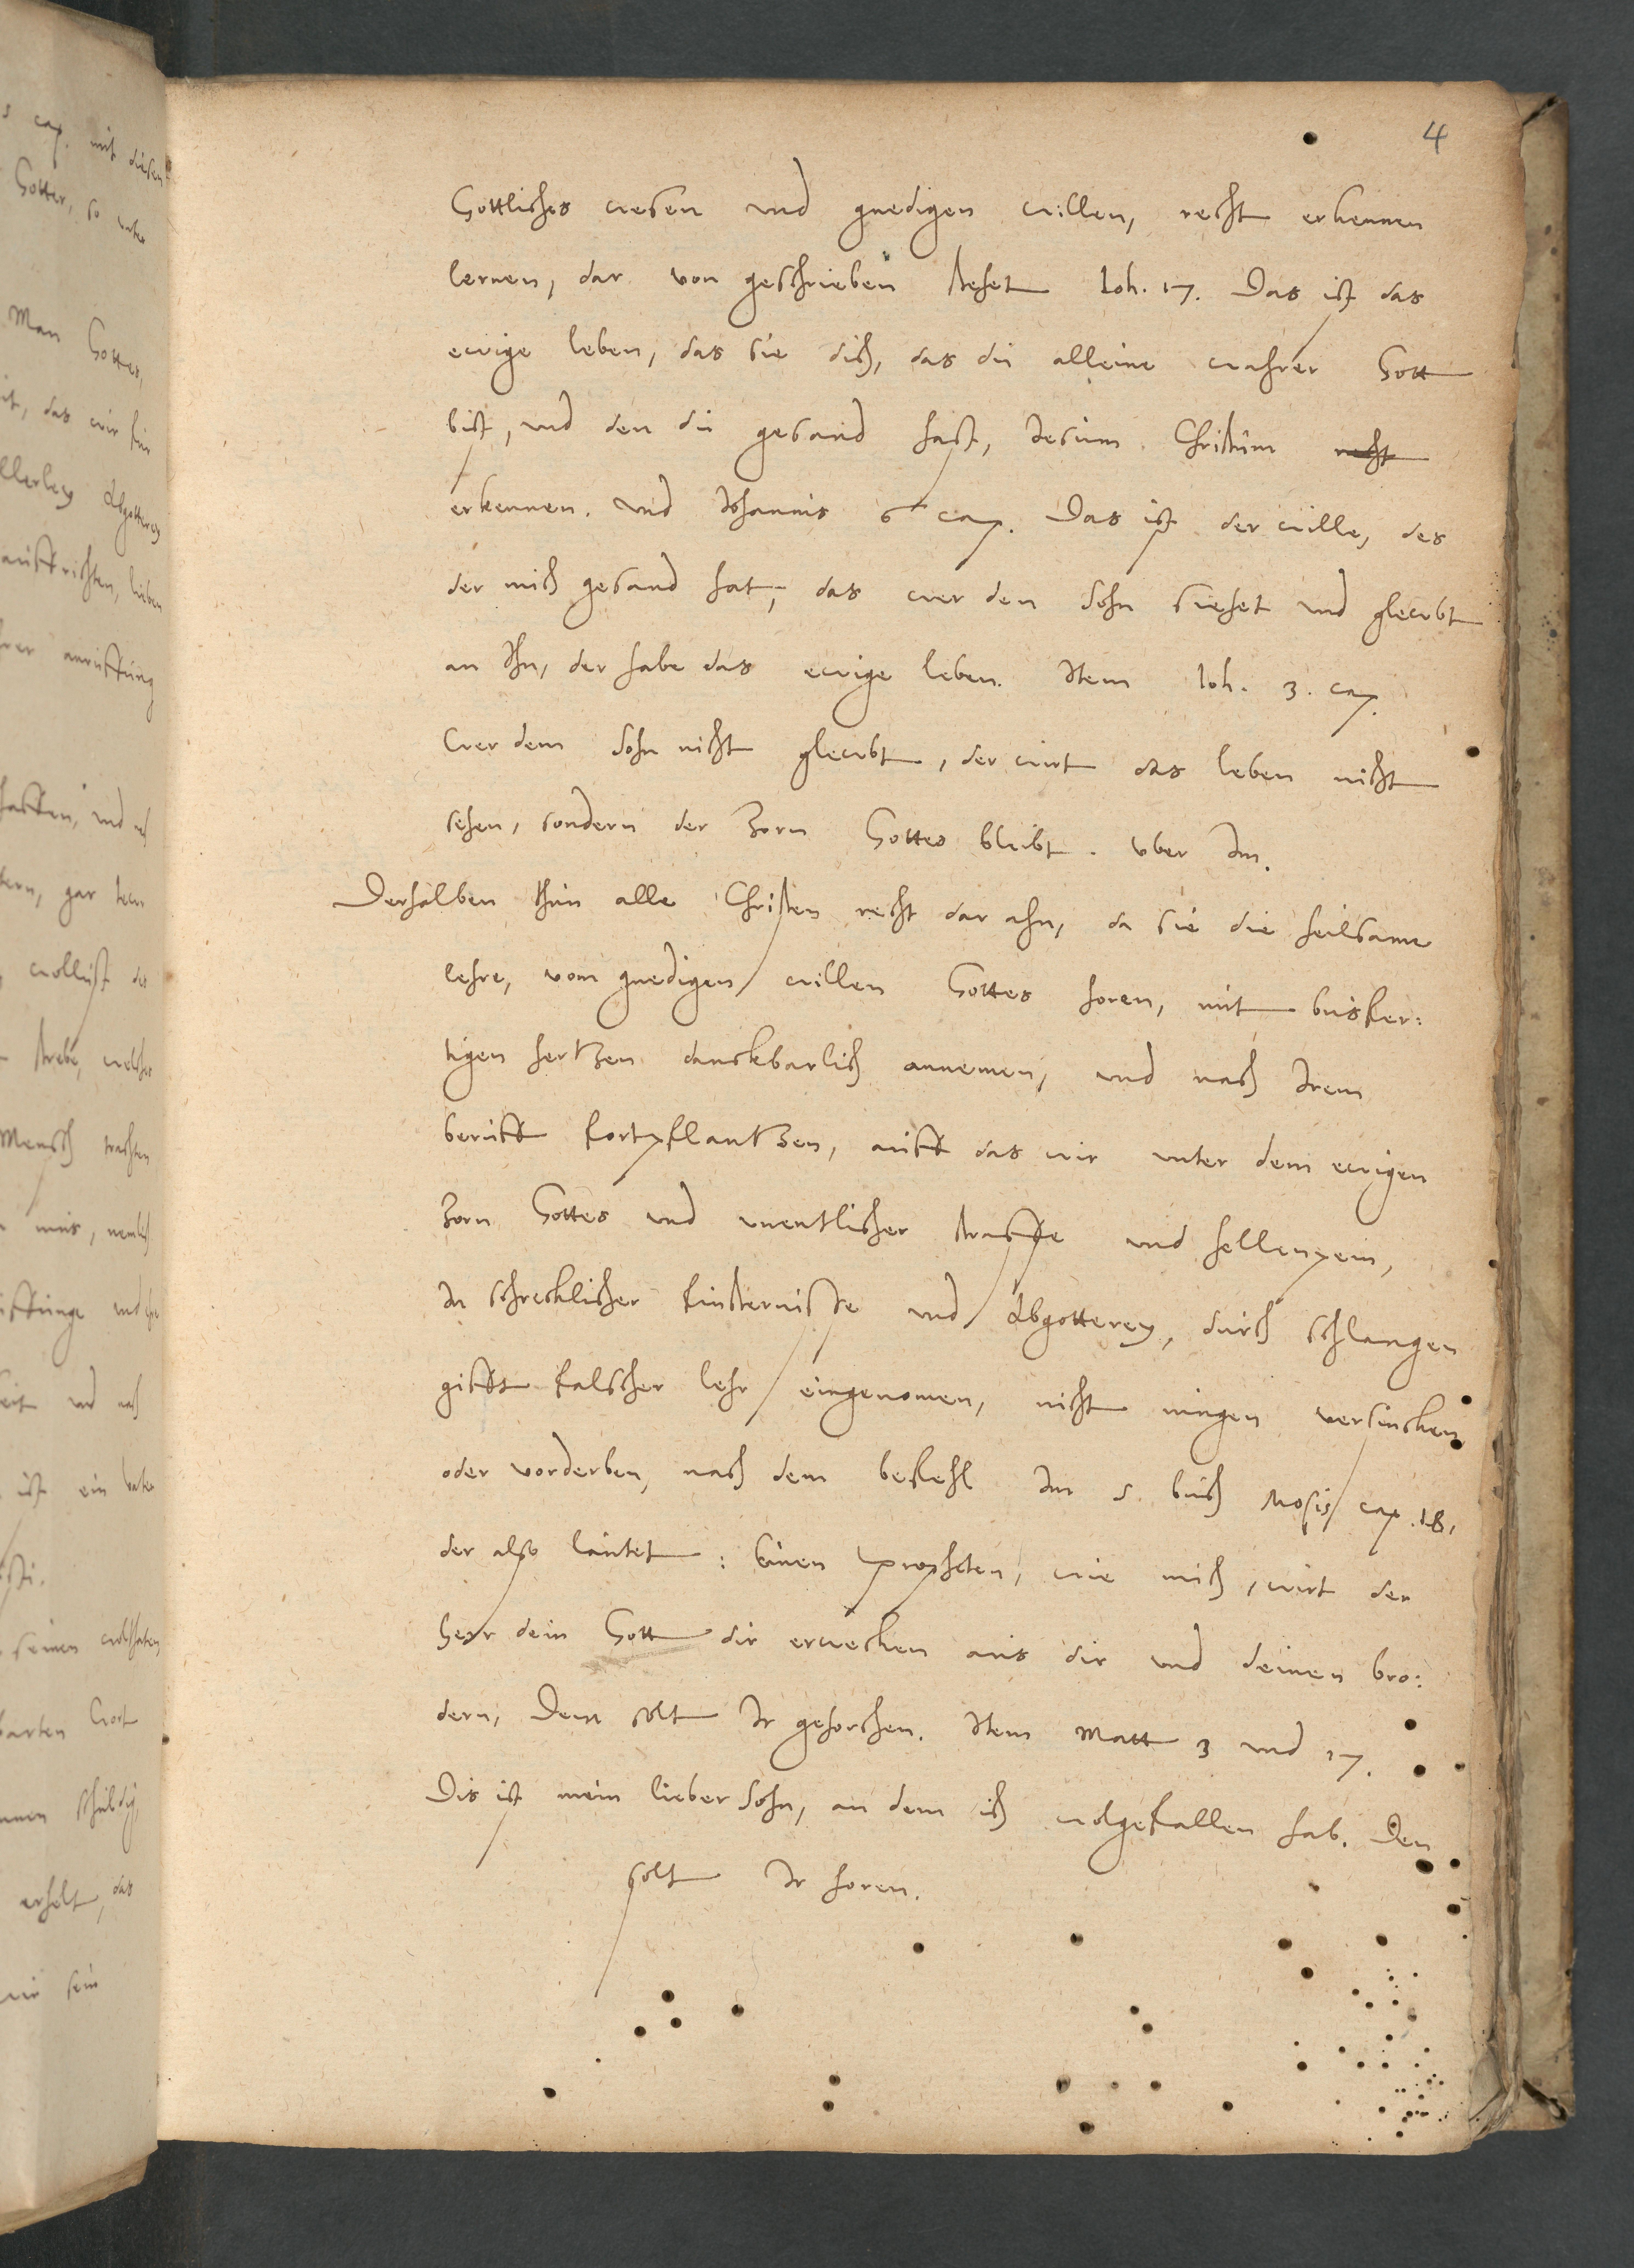 4
Gottliches wesen vnd gnedigen willen, recht erkennen
lernen, dar von geschrieben stehet Ioh. 17. Das ist das
ewige leben, das sie dich, das du alleine wahrer Gott
bist, vnd den du gesand hast, Jesum Christum recht
erkennen. vnd Johannis 6 cap. Das ist der wille, des
der mich gesand hat, das wer den Sohn siehet vnd glewbt
an Ihn, der habe das ewige leben. Item Ioh. 3. cap.
Wer dem Sohn nicht glewbt, der wirt das leben nicht
sehen, sondern der Zorn Gottes bleibt. vber Im.
Derhalben thun alle Christen recht dar ahn, da sie die heilsame
lehre, vom gnedigen willen Gottes horen, mit busfer:
tigen hertzen danckbarlich annemen, vnd nach Irem
beruff fortpflantzen, auff das wir vnter dem ewigen
Zorn Gottes vnd vnentlicher straffe vnd hellenpein,
In schrecklicher finsternisse vnd Abgotterey, durch schlangen
gifft falscher lehr eingenomen, nicht mugen versincken
oder vorderben, nach dem befehl Im 5. buch Mosis cap. 18,
der also lautet: Einen Propheten, wie mich, wirt der
Herr dein Gott dir erwecken aus dir vnd deinen bru:
dern, Dem solt Ir gehorchen. Item Matt 3 vnd 17.
Dis ist mein lieber Sohn, an dem ich wolgefallen hab. Den
solt Ir horen.